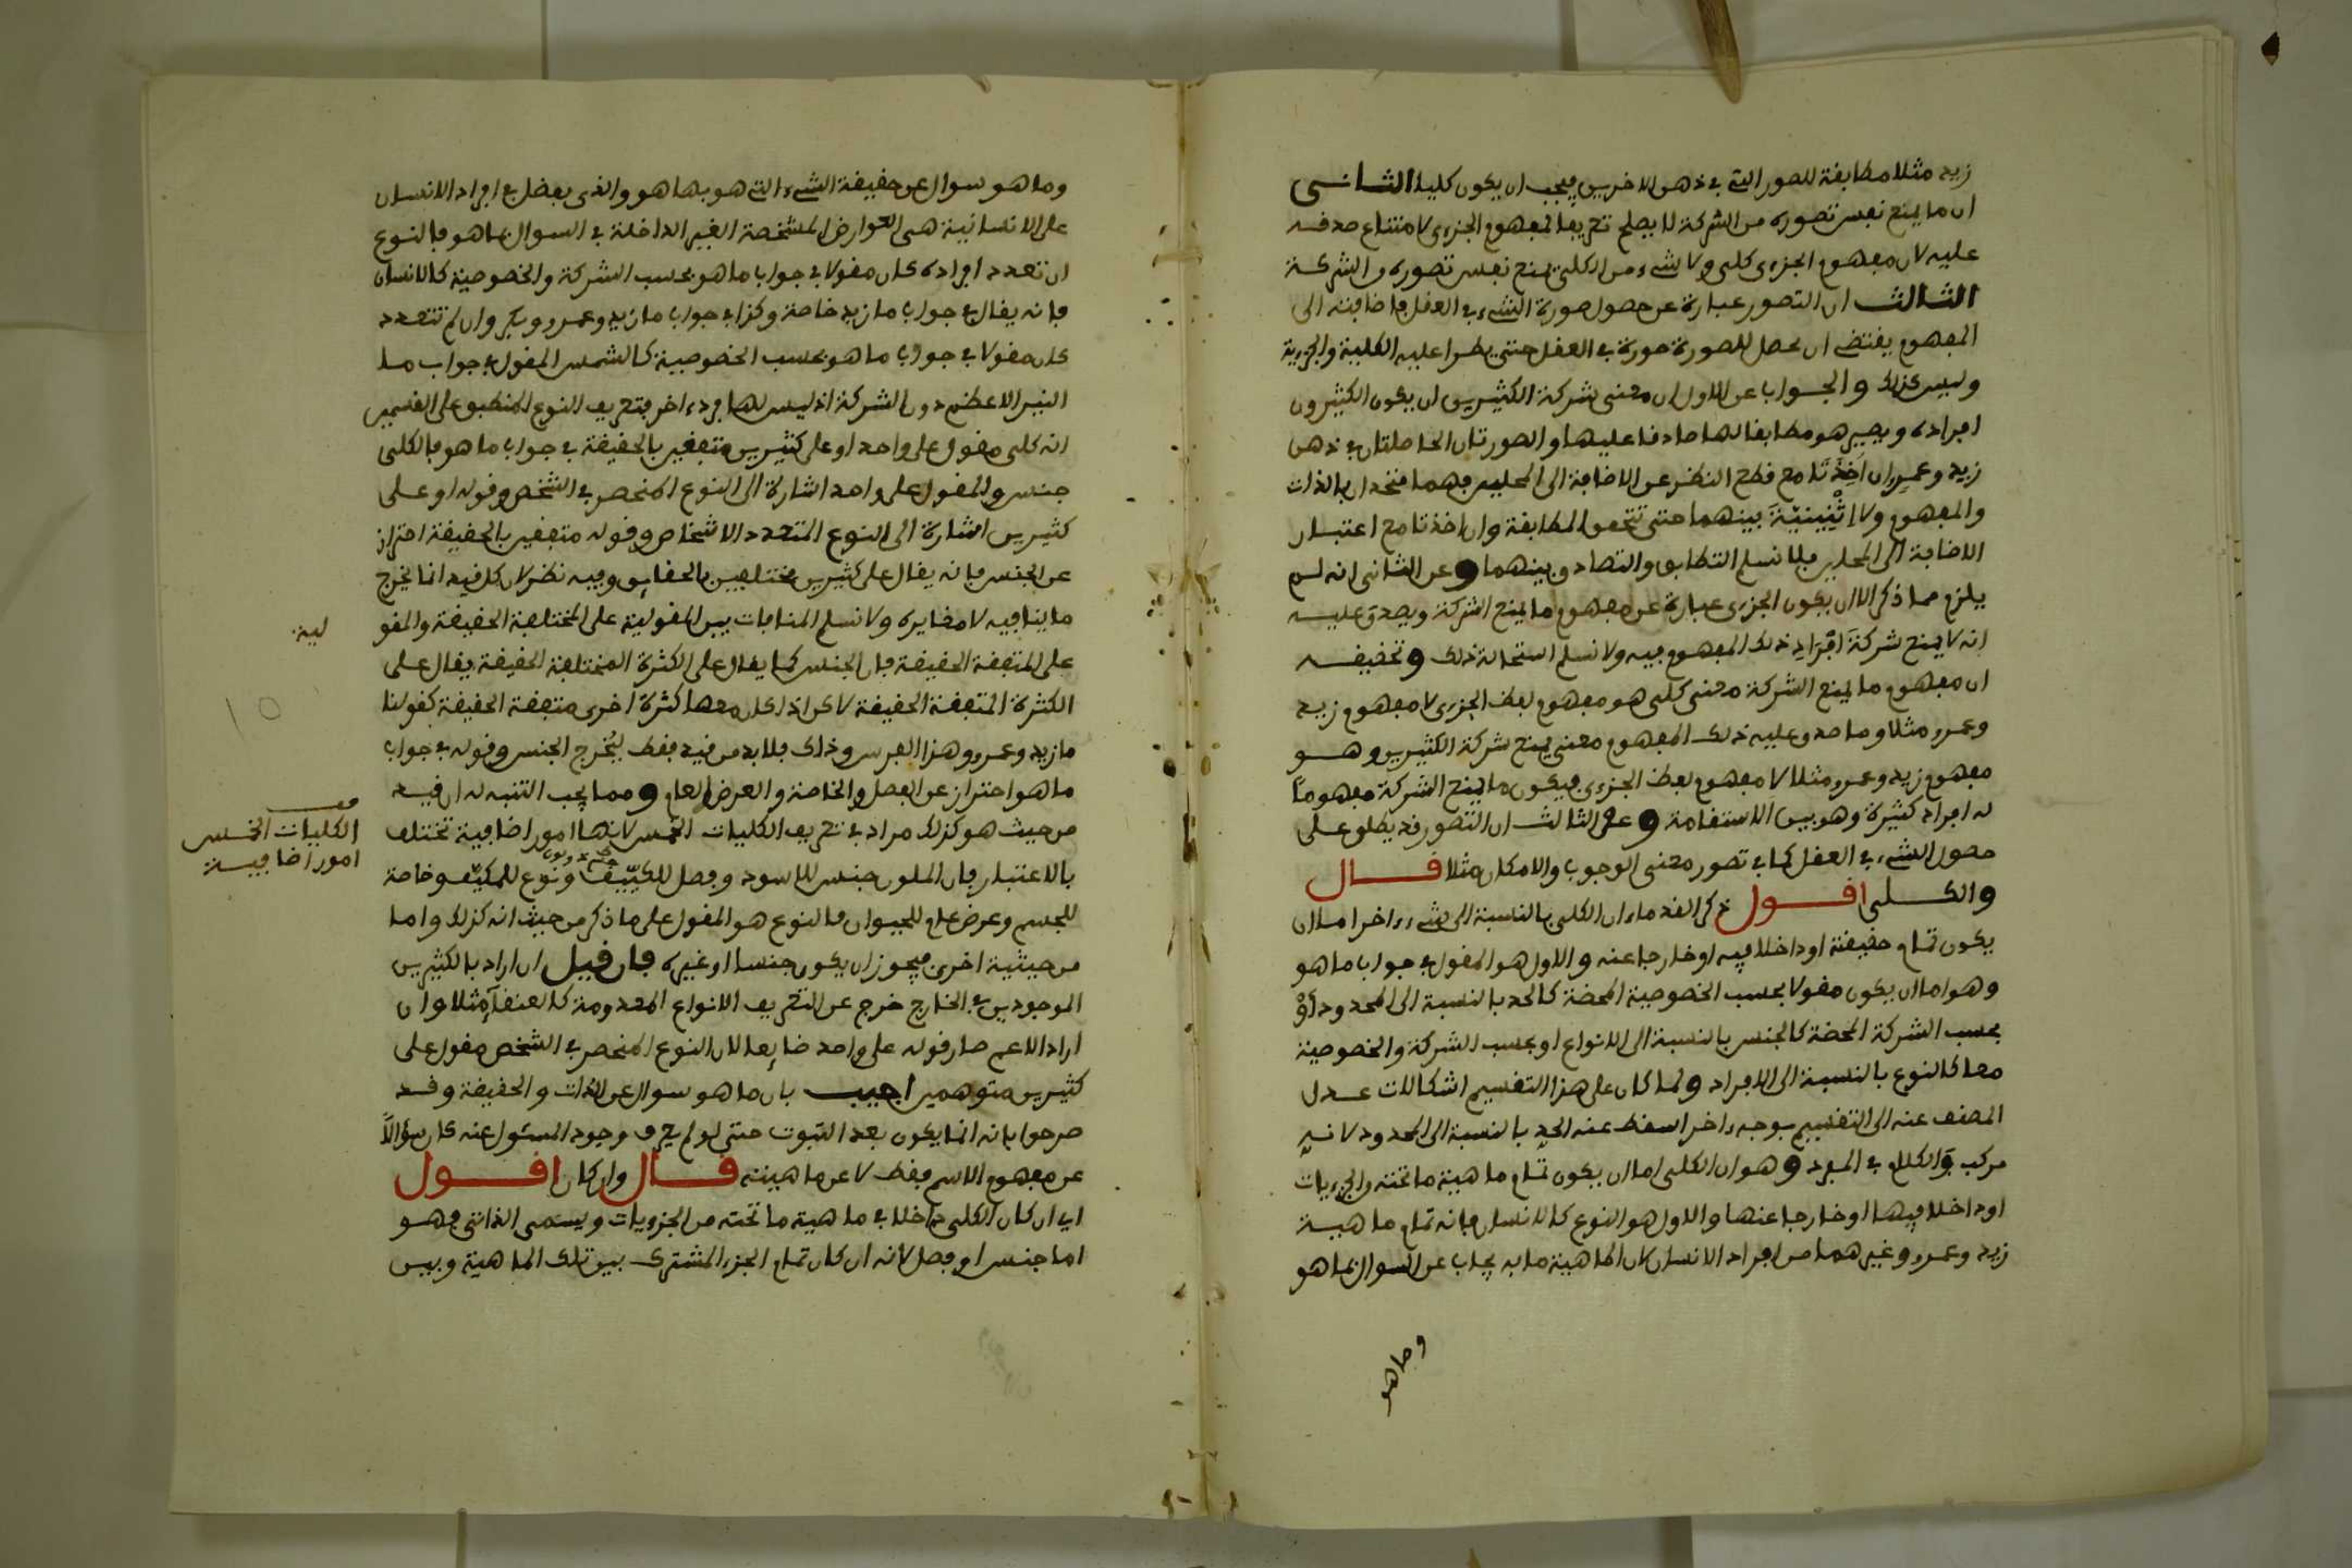 زيد مثلا مطابقة للصور التي في ذهن الاخرين فيجب ان يكون كليا الثاني
ان ما يمنع نفس تصوره من الشركة لا يصلح تعريفا لمفهوم الجزءي لامتناع صدقه
عليه لان مفهوم الجزءي كلي ولا شيء من الكلي يمنع نفس تصوره والشركة
الثالث ان التصور عبارة عن حصول صورة الشيء في العقل فاضافته الى
المفهوم يقتضي ان يحصل للصورة صورة في العقل حتى يطرا عليه الكلية والجزءية
وليس كذلك والجواب عن الاول ان معنى شركة الكثيرين ان يكون الكثيرون
افراده ويصير هو مطابقا لها صادقا عليها والصورتان الحاصلتان في ذهن
زيد وعمرو ان اخذتا مع قطع النظر عن الاضافة الى المحلين فهما متحدان بالذات
والمفهوم ولا اثنينية بينهما حتى تتحقق المطابقة وان اخذتا مع اعتبار
الاضافة الى المحلين فلا نسلم التطابق والتصادق بينهما وعن الثاني انه لم
يلزم مما ذكر الا ان يكون الجزءي عبارة عن مفهوم ما يمنع الشركة ويصدق عليه
انه لا يمنع شركة افراد ذلك المفهوم فيه ولا نسلم استحالة ذلك وتحقيقه
ان مفهوم ما يمنع الشركة معنى كلي هو مفهوم لفظ الجزءي لا مفهوم زيد
وعمرو مثلا وما صدق عليه ذلك المفهوم معنى يمنع شركة الكثيرين وهو
مفهوم زيد وعمرو مثلا لا مفهوم لفظ الجزءي فيكون ما يمنع الشركة مفهوما
له افراد كثيرة وهو بين الاستقامة وعن الثالث ان التصور قد يطلق على
حصول الشيء في العقل كما في تصور معنى الوجوب والامكان مثلا قال
والكلي اقول ذكر القدماء ان الكلي بالنسبة الى شيء اخر اما ان
يكون تمام حقيقته او داخلا فيه او خارجا عنه والاول هو المقول في جواب ما هو
وهو اما ان يكون مقولا بحسب الخصوصية المحضة كالحد بالنسبة الى المحدود او
بحسب الشركة المحضة كالجنس بالنسبة الى الانواع او بحسب الشركة والخصوصية
معا كالنوع بالنسبة الى الافراد ولما كان على هذا التقسيم اشكالات عدل
المصنف عنه الى التقسيم بوجه اخر اسقط عنه الحد بالنسبة الى المحدود لانه
مركب والكلام في المفرد وهو ان الكلي اما ان يكون تمام ماهية ما تحته من الجزءيات
او داخلا فيها او خارجا عنها والاول هو النوع كالانسان فانه تمام ماهية
زيد وعمرو وغيرهما من افراد الانسان لان الماهية ما به يجاب عن السوال بما هو
وما هو
وما هو سوال عن حقيقة الشيء التي هو بها هو والذي يفضل في افراد الانسان
على الانسانية هي العوارض المشخصة الغير الداخلة في السوال بما هو فالنوع
ان تعدد افراده كان مقولا في جواب ما هو بحسب الشركة والخصوصية كالانسان
فانه يقال في جواب ما زيد خاصة وكذا في جواب ما زيد وعمرو وبكر وان لم تتعدد
كان مقولا في جواب ما هو بحسب الخصوصية كالشمس المقول في جواب ما
النير الاعظم دون الشركة اذ ليس لها فرد اخر فتعريف النوع المنطبق على القسمين
انه كلي مقول على واحد او على كثيرين متفقين بالحقيقة في جواب ما هو فالكلي
جنس والمقول على واحد اشارة الى النوع المنحصر في الشخص وقوله او على
كثيرين اشارة الى النوع المتعدد الاشخاص وقوله متفقين بالحقيقة احتراز
عن الجنس فانه يقال على كثيرين مختلفين بالحقايق وفيه نظر لان كل قيد انما يخرج
ما ينافيه لا مغايره ولا نسلم المنافات بين المقولية على المختلفة الحقيقة والمقو
لية
على المتفقة الحقيقة فان الجنس كما يقال على الكثرة المختلفة الحقيقة يقال على
الكثرة المتفقة الحقيقة لاكن اذا كان معها كثرة اخرى متفقة الحقيقة كقولنا
ما زيد وعمرو وهذا الفرس وذاك فلا بد من قيد فقط ليخرج الجنس وقوله في جواب
ما هو احتراز عن الفصل والخاصة والعرض العام ومما يجب التنبه له ان قيد
من حيث هو كذلك مراد في تعريف الكليات الخمس لانها امور اضافية تختلف
الكليات الخمس
امور اضافية
بالاعتبار فان الملون جنس للاسود وفصل للكيف ونوع للمكيف وخاصة
للجسم وعرض عام للحيوان فالنوع هو المقول على ما ذكر من حيث انه كذلك واما
من حيثية اخرى فيجوز ان يكون جنسا او غيره فان قيل ان اراد بالكثيرين
الموجودين في الخارج خرج عن التعريف الانواع المعدومة كالعنقاء مثلا وان
اراد الاعم صار قوله على واحد ضايعا لان النوع المنحصر في الشخص مقول على
كثيرين متوهمين اجيب بان ما هو سوال عن الذات والحقيقة وقد
صرحوا بانه انما يكون بعد الثبوت حتى لو لم يعرف وجود المسئول عنه كان سؤالا
عن مفهوم الاسم فقط لا عن ماهيته قال وان كان اقول
اي ان كان الكلي داخلا في ماهية ما تحته من الجزءيات ويسمى الذاتي فهو
اما جنس او فصل لانه ان كان تمام الجزء المشترك بين تلك الماهية وبين